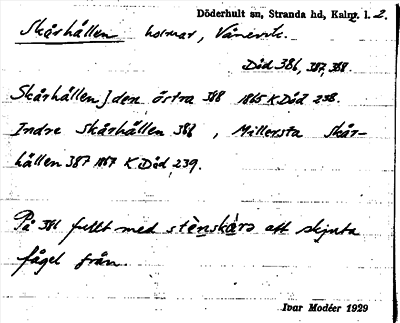 Döderhult sn, Stranda hd, Kalmr. l. 2.
Skårhällen holmar, Vånevik.
Död 386, 387, 388.
Skårhällen] den östra 388 1865 K Död 238.
Indre Skårhällen 386, Millersta Skår-
hällen 387 1867 K Död 239.
På 386 fullt med stènskàrs att skjuta
fågel från.
Ivar Modéer 1929